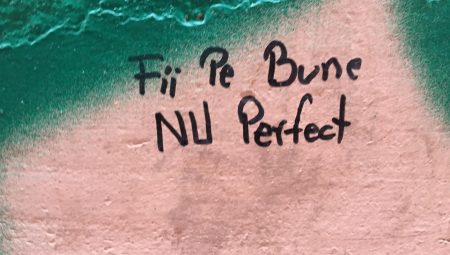 Fii Pe Bune
NU Perfect